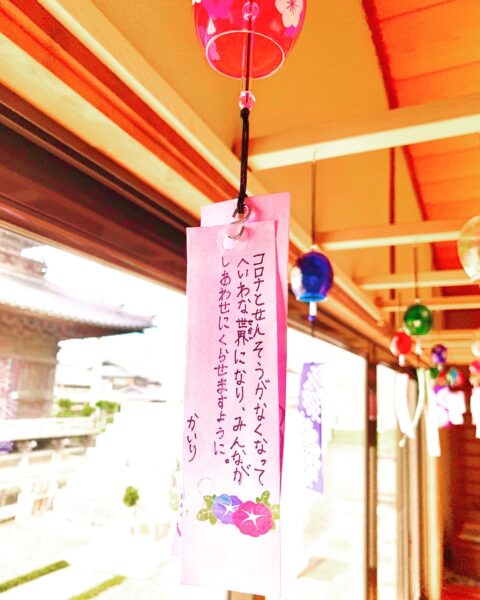 コロナとせんそうがなくなって
へいわな世界になり、みんなが
しあわせにくらせますように。
かいり